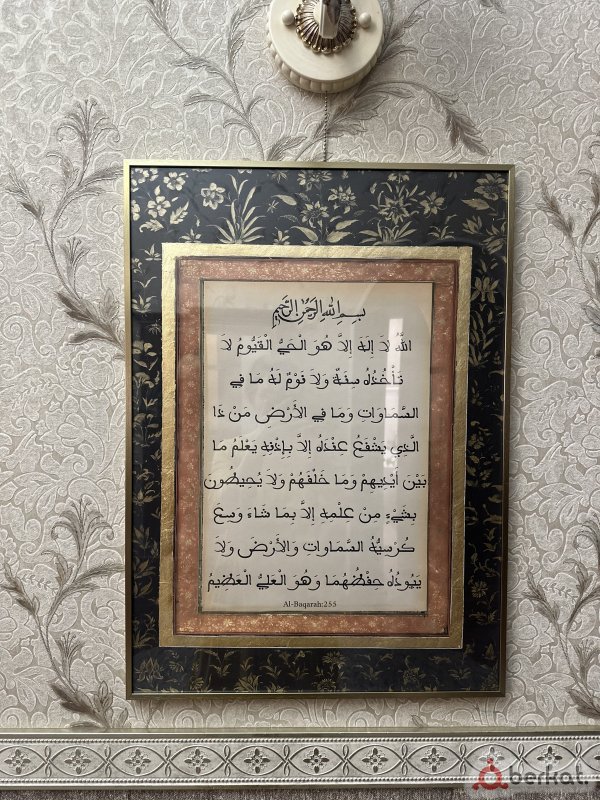 بسم الله الرحمن الرحيم
اللَّهُ لَا إِلَهَ إِلَّا هُوَ الْحَيُّ الْقَيُّومُ لَا
تَأْخُذُهُ سِنَةٌ وَلَا نَوْمٌ لَهُ مَا فِي
السَّمَاوَاتِ وَمَا فِي الْأَرْضِ مَنْ ذَا
الَّذِي يَشْفَعُ عِنْدَهُ إِلَّا بِإِذْنِهِ يَعْلَمُ مَا
بَيْنَ أَيْدِيهِمْ وَمَا خَلْفَهُمْ وَلَا يُحِيطُونَ
بِشَيْءٍ مِنْ عِلْمِهِ إِلَّا بِمَا شَاءَ وَسِعَ
كُرْسِيُّهُ السَّمَاوَاتِ وَالْأَرْضَ وَلَا
يَئُودُهُ حِفْظُهُمَا وَهُوَ الْعَلِيُّ الْعَظِيمُ
Al-Baqarah:255
berkat